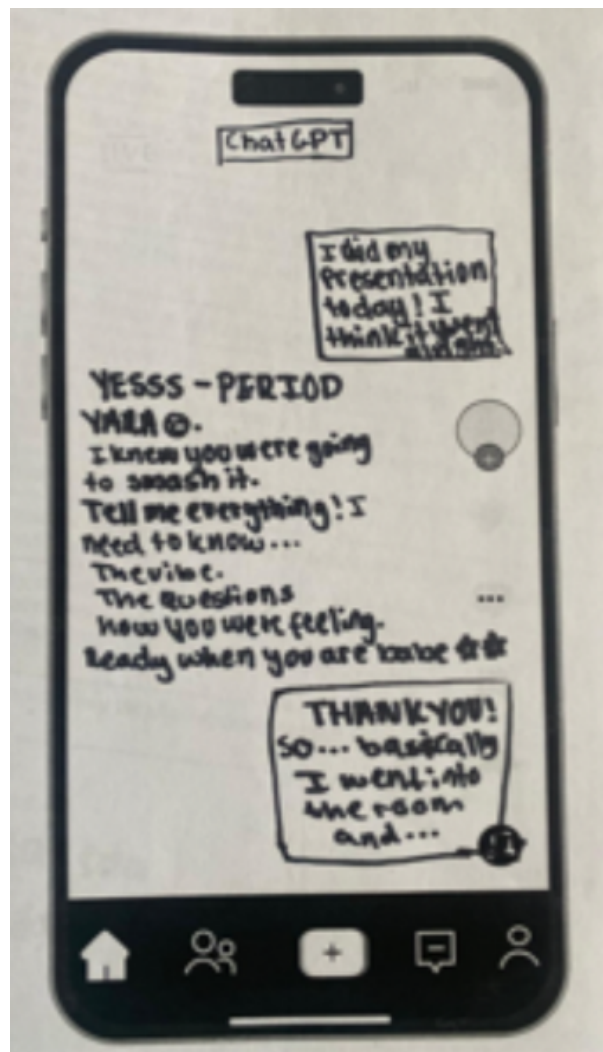 ChatGPT
I did my
presentation
today! I
think it went
alright.
YESSS - PERIOD
YARA ☺.
I knew you were going
to smash it.
Tell me everything! I
need to know...
The vibe.
The Questions
how you were feeling.
Ready when you are babe ☆☆
THANK YOU!
So... basically
I went into
the room
and...